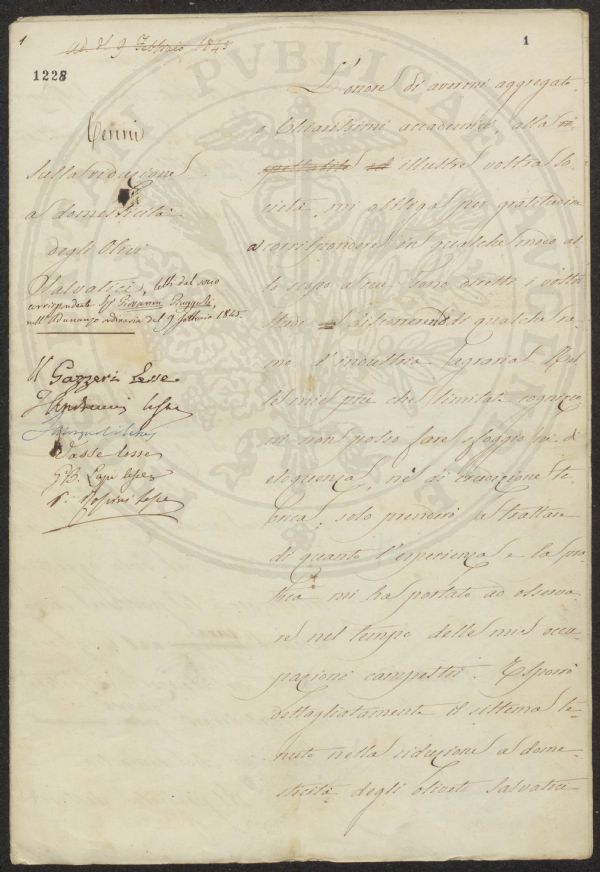 1
ad dì 9 Febbraio 1845
1
1228
Cenni
sulla riduzione
a domesticità
degli Olivi
Salvatici, letti dal socio
corrispondente Sig. Giovanni
nell'Adunanza ordinaria del 9 1845.
V. Gazzeri Lesse
lesse
Lapi lesse
lesse
L'onore di avermi aggregato
o Chiarissimi accademici, alla ri-
spettabile ed illustre vostra so-
cietà, mi obbliga per gratitudine
a corrispondere in qualche modo al-
lo scopo a cui sono diretti i vostri
studi discorrendo di qualche ra-
mo d'industria agraria. Nel-
le mie più che limitate cognizio-
ni non posso fare sfoggio nè di
eloquenza, nè di erudizione te-
orica, solo prenderò a trattare
di quanto l'esperienza e la pra-
tica mi ha portato ad osserva-
re nel tempo delle mie occu-
pazioni campestri. Esporrò
dettagliatamente il sistema te-
nuto nella riduzione a dome-
sticità degli oliveti salvatici